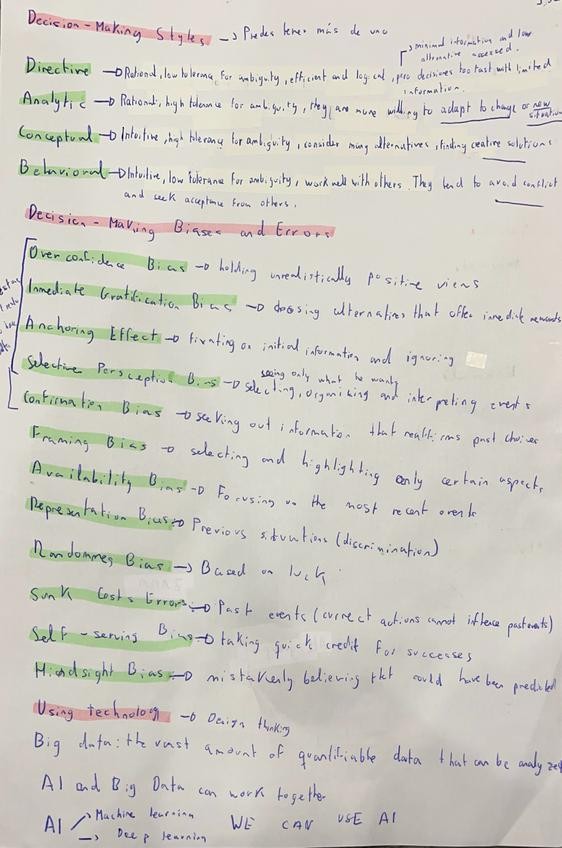 Decision-Making Styles → Puedes tener más de uno
minimal information and low
alternative assessed.
Directive → Rational, low tolerance for ambiguity, efficient and logical, pero decisions too fast with limited
information.
Analytic → Rational, high tolerance for ambiguity, they are more willing to adapt to change or new
situations
Conceptual → Intuitive, high tolerance for ambiguity, consider many alternatives, finding creative solutions
Behavioral → Intuitive, low tolerance for ambiguity, work well with others. They tend to avoid conflict
and seek acceptance from others.
Decision-Making Biases and Errors
Overconfidence Bias → holding unrealistically positive views
Inmediate Gratification Bias → choosing alternatives that offer inmediate rewards
Anchoring Effect → fixating on initial information and ignoring
seeing only what he wants
Selective Persception Bias → selecting, organizing and interpreting events
Confirmation Bias → seeking out information that reaffirms past choices
Framing Bias → selecting and highlighting only certain aspects
Availability Bias → Focusing on the most recent events
Representation Bias → Previous situations (discrimination)
Randomnes Bias → Based on luck
Sunk Costs Errors → Past events (current actions cannot influence past events)
Self-serving Bias → taking quick credit for successes
Hindsight Bias → mistakenly believing that could have been predicted
Using technology → Design thinking
Big data: the vast amount of quantifiable data that can be analyzed
AI and Big Data can work together
AI → Machine learning WE CAN USE AI
→ Deep learning